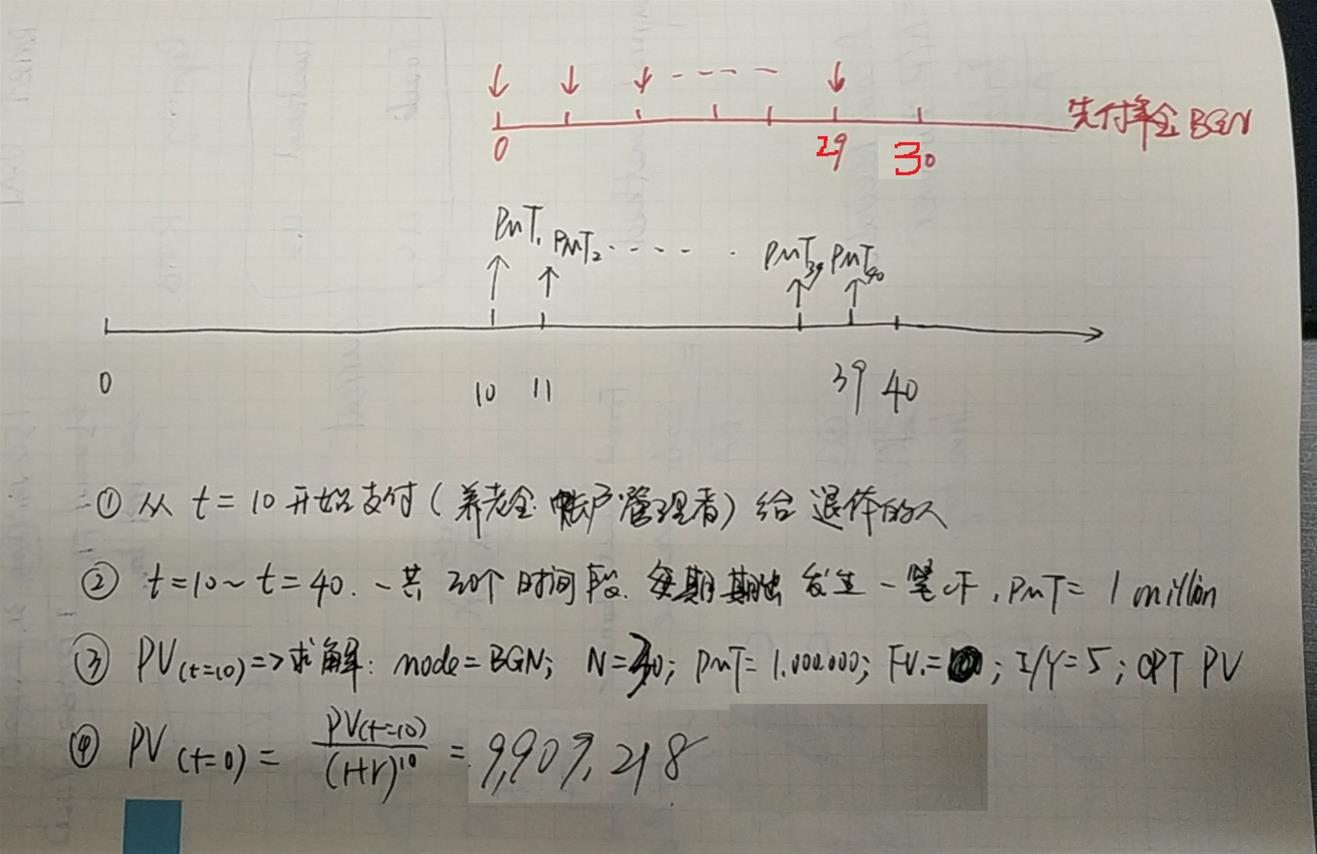 0 29 30 先付年金 BGN
PMT1 PMT2 ····· PMT39 PMT40
0 10 11 39 40
① 从 t=10 开始支付(养老金帐户管理者)给 退休的人
② t=10~t=40. 一共 30个 时间段. 每期期初 发生一笔CF, PMT= 1 million
③ PV(t=10)=>求解: mode=BGN; N=30; PMT=1.000.000; FV.=0; I/Y=5; CPT PV
④ PV(t=0) = PV(t=10)/(1+r)^10 = 9,909,218